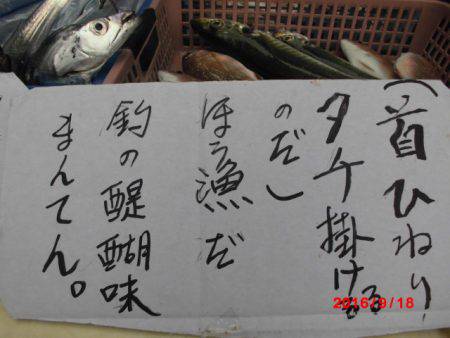 (首ひねり!
タケ掛ける
のだ)
ほう漁だ
釣の醍醐味
まんてん。
2016/9/18